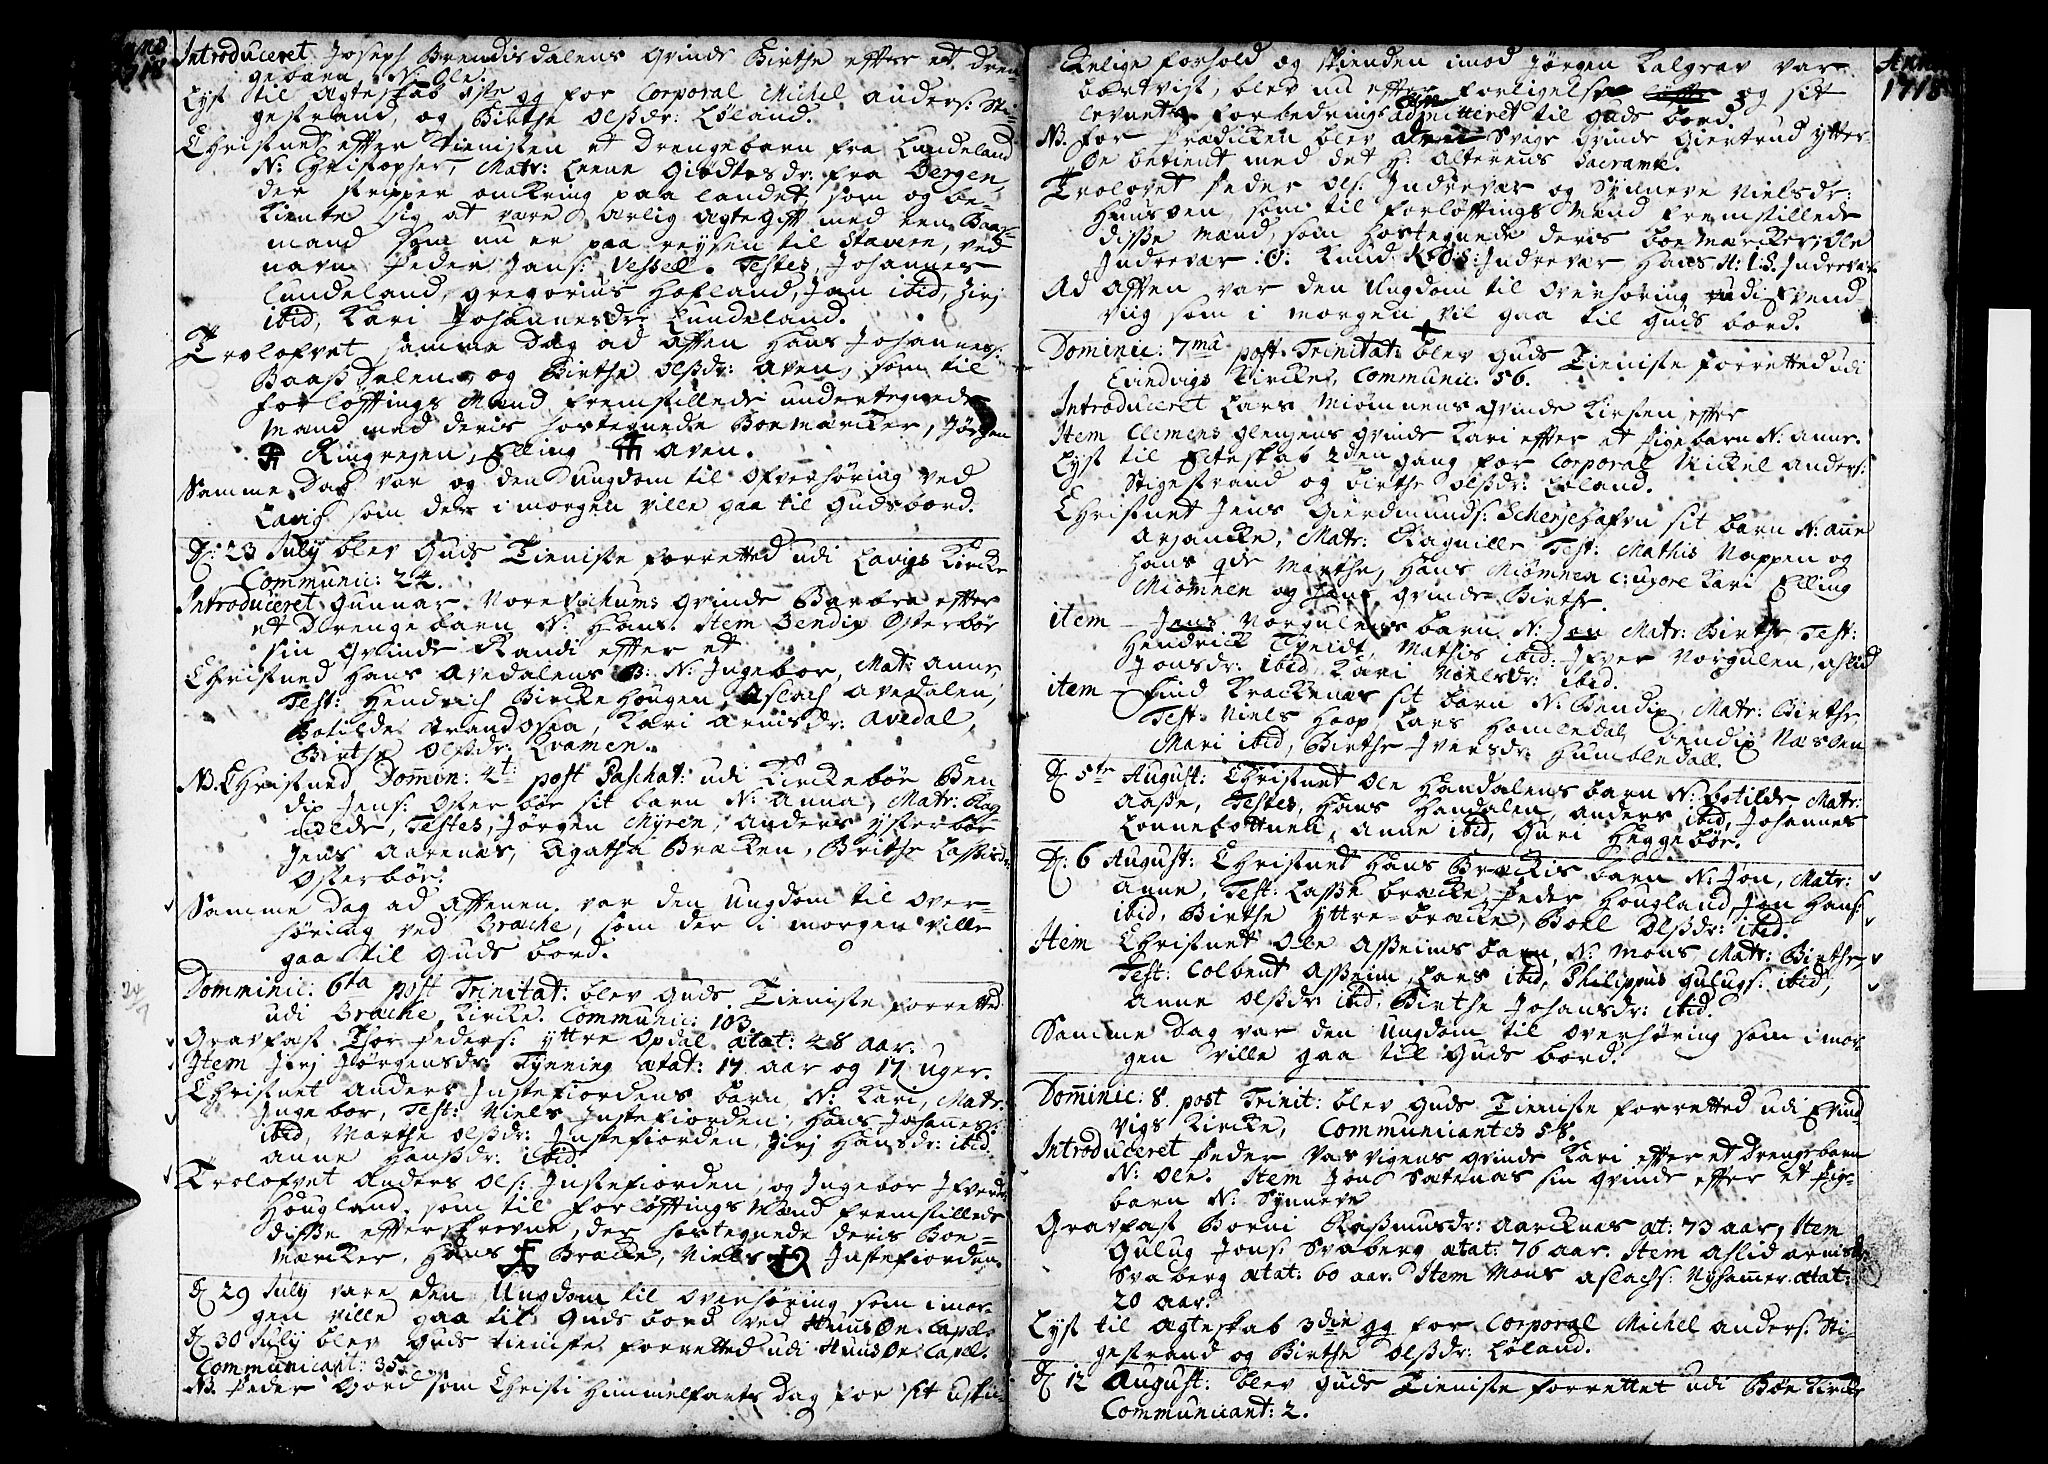 Anno
1718
Introduceret Joseph Brendisdalens Qvinde Birthe efter et Dren
gebarn N: Ole.
Lyst til Ægteskab 1ste gg for Corporal Michel Anders: Sti-
gestrand, og Birthe Olsdr: Løland.
Christnet efter Tienisten et Drengebarn fra Lundeland
N: Christopher, Matr: Leene Giødtesdr: fra Bergen,
der stripper omkring paa landet, som og be-
kiente sig at være ærlig ægtegift med een Baas-
mand som nu er paa reysen til Stavern, ved
navn Peder Jans: Vessel. Testes, Johannes
Lundeland, Gregorius Hofland, Jan ibid, Zirj
ibid, Kari Johannesdr: Lundeland.
Trolofvet samme Dag ad Aften Hans Johannes:
Baassdalen, og Birthe Olsdr: Aven, som til
forløftings Mænd fremstillede undertegnede
Mænd med deris hostegnede Boemærcker, Jørgen
Ringrexen, Elling Aven.
Samme Dag var og den Ungdom til Ofverhøring ved
Lavig som der i morgen ville gaa til Gudsbord.
D: 23 July blev Guds Tieniste forretted udi Lavigs Kircke
Communic: 24.
Introduceret Gunnar Norevichums Qvinde Barbra efter
et Drengebarn N: Hans. Item Bendix Osterbøe
sin Qvinde Randi efter et
Christned Hans Avedalens B: N: Ingebor, Mat: Anne,
Test: Hendrich Birckehougen, Aslach Avedalen,
Botilde Strandosen, Kari Arnisdr: Avedal,
Birthe Olsdr: Kvamen.
NB. Christned Domin: 4t: post Paschat: udi Kirckebøe Ben
dix Jens: Osterbøe sit barn N: Anna, Matr: Rag
nilde, Testes, Jørgen Myren, Anders Ysterbøe
Jens Aarenes, Agatha Brecken, Brithe Lassesdr:
Osterbøe.
Samme Dag ad Aftenen var den Ungdom til Over-
høring ved Bræche, som der i morgen ville
gaa til Guds bord.
Domminic: 6ta post Trinitat: blev Guds Tieniste forretted
udi Bræche Kircke. Communic: 103.
Gravfast Thor Peders: Yttre Opdal ætat: 48 aar.
Item Zirj Jørgensdr: Tynning ætat: 17 aar og 17 uger.
Christnet Anders Instefiordens barn N: Kari, Matr:
Ingebor, Test: Niels Instefiorden, Hans Johanes:
ibid, Marthe Olsdr: Instefiorden, Zirj Hansdr: ibid
Anne Hansdr: ibid.
Trolofvet Anders Ols: Instefiorden, og Ingebor Ifversdr:
Hougland, som til forløftings Mænd fremstillede
disse efterskrevne, der hostegnede deris Boe-
mærcker, Hans Bræcke, Niels Instefiorden.
D 29 July vare den Ungdom til Overhøring som i mor-
gen ville gaa til Guds bord ved Huusøe Capel.
D 30 July blev Guds tieniste forretted udi Huusøe Capel.
Communicant: 35.
NB. Peder Gord som Christi Himmelfarts Dag for sit uski-
20/7
Anno
1718
kelige forhold og skienden imod Jørgen Kalgrav var
bortvist, blev nu efter forligelse og sit
levnets forbedring admitteret til Guds bord
NB. for Prædicken blev Svige Qvinde Giertrud Ytter-
øe betient med det H: Alterens Sacramt:
Trolovet Peder Ols: Indrevær og Synneve Nielsdr:
Huusøen, som til forløftings Mænd fremstillede
disse mænd, som hostegnede deris boemærcker, Ole
Indrevær :O: Knud K:O:S: Indrevær Hans H: I.S. Indrevær.
Ad Aften var den Ungdom til Overhøring udi Evend
viig som i morgen vil gaa til Guds bord.
Dominic: 7ma post Trinitat: blev Guds Tieniste forretted udi
Evindvigs Kircke, Communic. 56.
Introduceret Lars Miømnens Qvinde Kirsten efter
Item Clemens Glenjens Qvinde Kari efter et pigebarn N: Anne.
Lyst til Ecteskab 2den gang for Corporal Mickel Anders:
Stigestrand og Birthe Olsdr: Løland.
Christnet Jens Gierdmunds: Scherjehafvn sit barn N: Anne
Arjancke, Matr: Ragnille Test: Mathis Nappen og
Hans qde Marthe, Hans Miømnen c: uxore Kari Elling
Miømnen og hans Qvinde Birthe.
item Jens Norgulens barn N: Jon Matr: Birthe Test:
Hendrick Tveidt, Mathis ibid: Ifver Norgulen, Aslid
Jonsdr: ibid, Kari Nielsdr: ibid.
item Find Krackenæs sit barn N: Bendix, Matr: Birthe,
Test: Niels Hoop, Lars Homledal, Bendix Næsøen
Mari ibid, Birthe Iversdr: Humbledall.
D 5te August: Christnet Ole Handalens barn N: Botilde, Matr:
Aasse, Testes, Hans Handalen, Anders ibid, Johannes
Lonnebottnen, Anne ibid, Guri Heggebøe.
D: 6 August: Christnet Hans Bræckis barn N: Jon, Matr:
Anne, Test: Lasse Bræcke, Peder Hougland, Jon Hans:
ibid, Birthe Yttre-bræcke, Boel Olsdr: ibid.
Item Christnet Ole Asseims barn, N: Mons, Matr: Birthe,
Test: Colbent Asseim, Lars ibid, Philippus Gulugs: ibid,
Anne Olsdr: ibid, Birthe Johansdr: ibid.
Samme Dag var den Ungdom til Overhøring som i mor-
gen ville gaa til Guds bord.
Dominic: 8. post Trinit: blev Guds Tieniste forretted udi Evind-
vigs Kircke, Communicantes 58.
Introduceret Peder Vasvigens Qvinde Kari efter et Drengebarn
N: Ole. Item Jon Sætenæs sin Qvinde efter et Pige-
barn N: Synneve
Gravfast Borni Rasmusdr: Aarcknæs æt: 73 aar, Item
Gulug Jons: Svaberg ætat: 76 aar. Item Aslid Arnisdr:
Svaberg ætat: 60 aar. Item Mons Aslachs: Nyhamer ætat:
20 aar.
Lyst til Ægteskab 3die gg for Corporal Michel Anders: Sti-
gestrand og Birthe Olsdr: Løland.
D 12 August: blev Guds Tieniste forrettet udi Bøe Kircke
Communicant: 2.